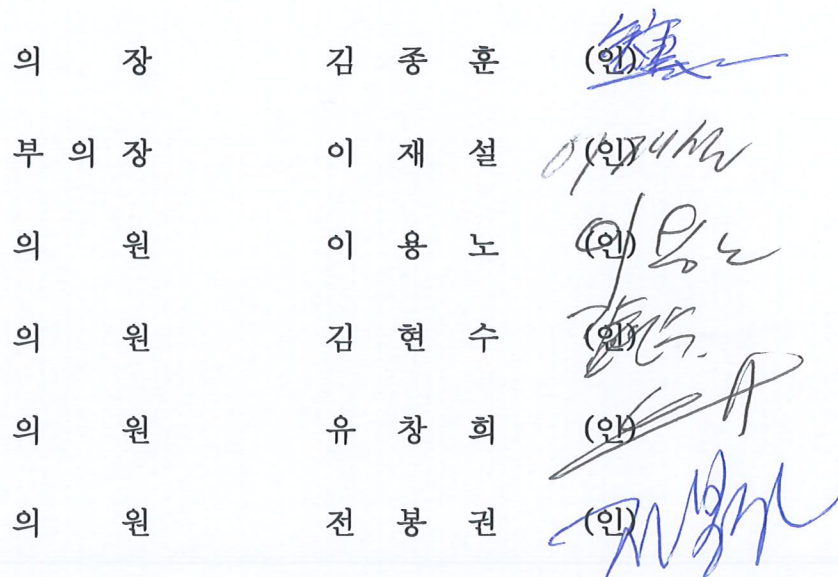 의 장 김 종 훈 (인)
부 의 장 이 재 설 (인) 이재설
의 원 이 용 노 (인) 이용노
의 원 김 현 수 (인)
의 원 유 창 희 (인)
의 원 전 봉 권 (인)